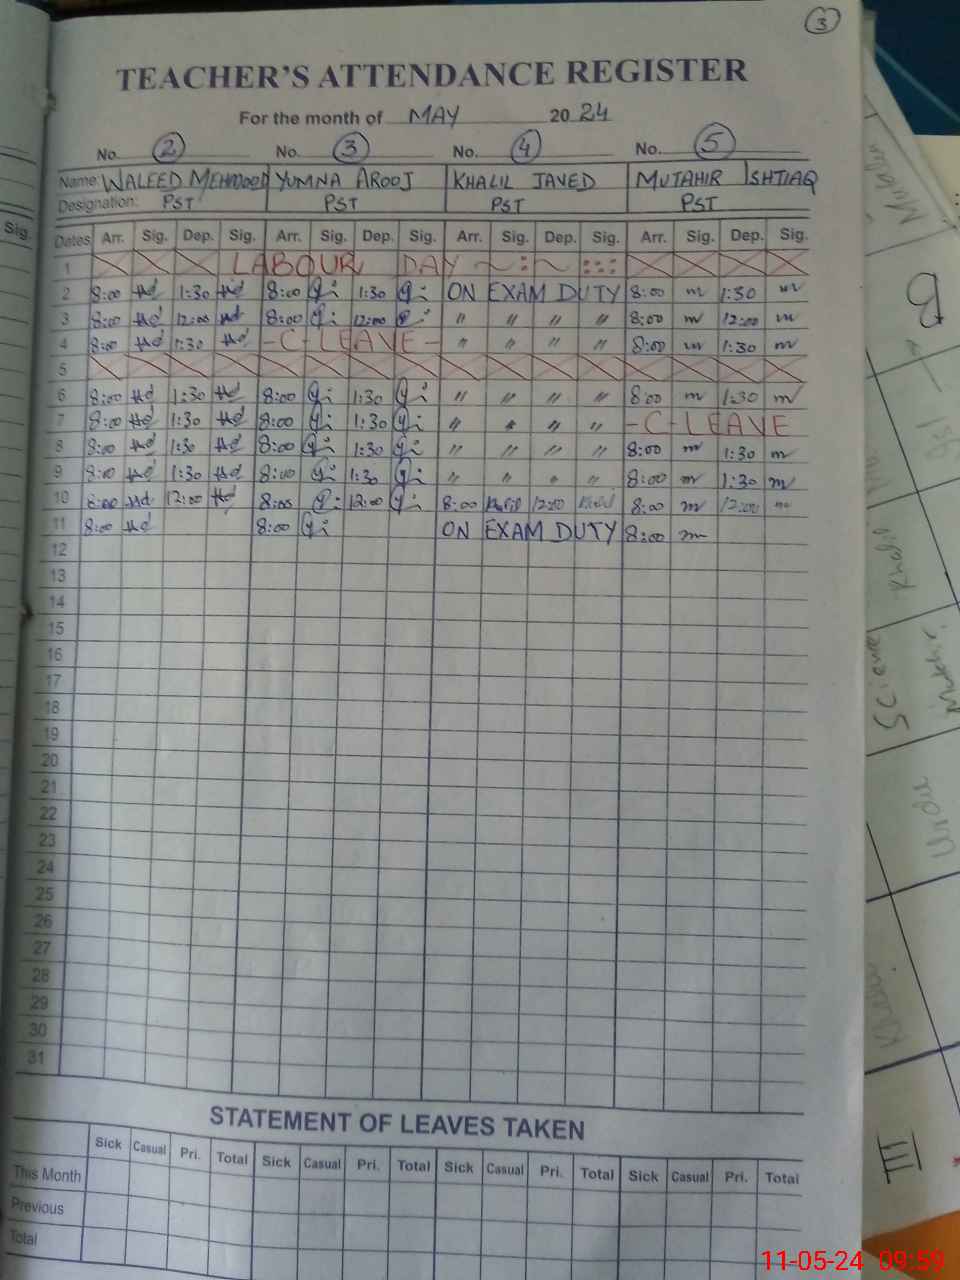 3
TEACHER'S ATTENDANCE REGISTER
For the month of MAY 2024
No. 2 No. 3 No. 4 No. 5
Name: WALEED MEHMOOD YUMNA AROOJ KHALIL JAVED MUTAHIR ISHTIAQ
Designation: PST PST PST PST
Sig.
Dates Arr. Sig. Dep. Sig. Arr. Sig. Dep. Sig. Arr. Sig. Dep. Sig. Arr. Sig. Dep. Sig.
1 LABOUR DAY
2 8:00 1:30 8:00 1:30 ON EXAM DUTY 8:00 1:30
3 8:00 12:00 8:00 12:00 " " " " 8:00 12:00
4 8:00 1:30 -C-LEAVE- " " " " 8:00 1:30
5
6 8:00 1:30 8:00 1:30 " " " " 8:00 1:30
7 8:00 1:30 8:00 1:30 " " " " -C-LEAVE
8 8:00 1:30 8:00 1:30 " " " " 8:00 1:30
9 8:00 1:30 8:00 1:30 " " " " 8:00 1:30
10 8:00 12:00 8:00 12:00 8:00 Khalil 12:00 Khalil 8:00 12:00
11 8:00 8:00 ON EXAM DUTY 8:00
12
13
14
15
16
17
18
19
20
21
22
23
24
25
26
27
28
29
30
31
STATEMENT OF LEAVES TAKEN
Sick Casual Pri. Total Sick Casual Pri. Total Sick Casual Pri. Total Sick Casual Pri. Total
This Month
Previous
Total
Science
Khalil
Mutahir
Urdu
III
11-05-24 09:59